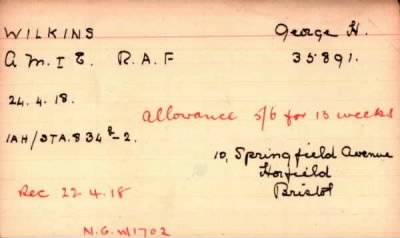 WILKINS George H.
A M. I E. R.A.F 35891.
24.4.18.
Allowance 5/6 for 13 weeks
1AH/STA.834 -2.
10, Springfield Avenue
Horfield
Bristol
Rec 22.4.18
N.G.W1702